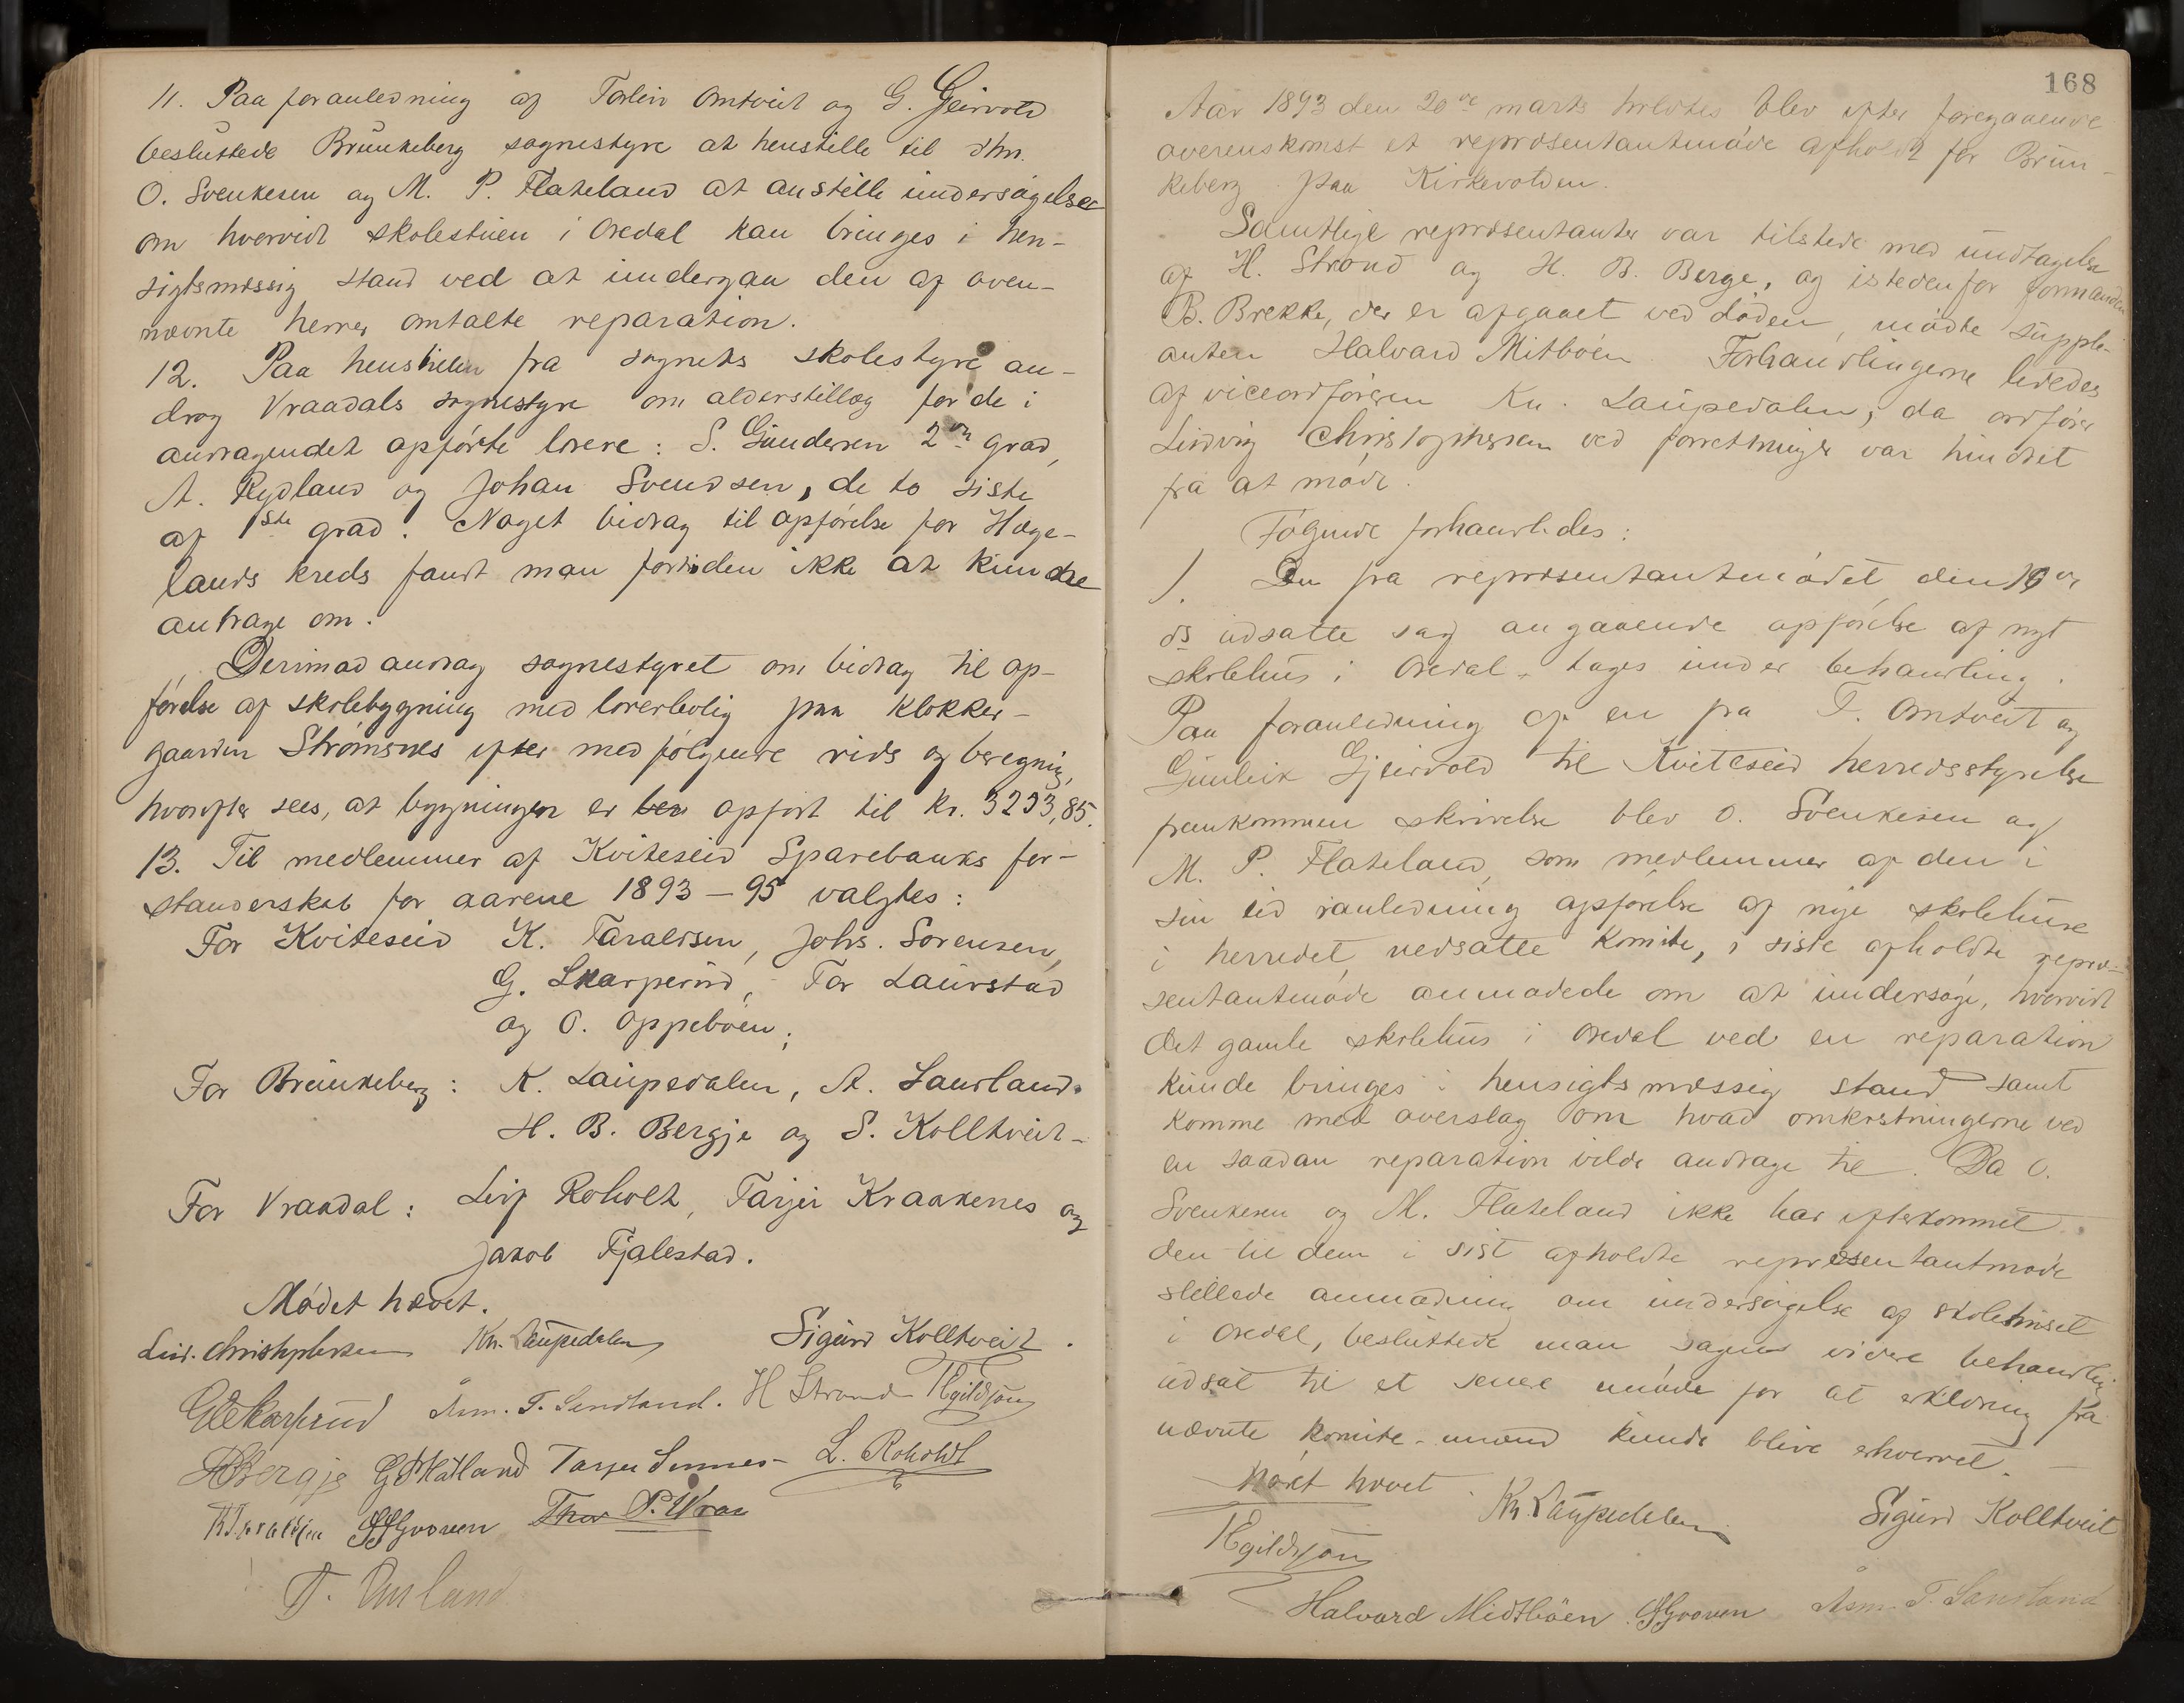 11. Paa foranledning af Torleiv Omtveit og G. Gjeirvold
besluttede Brunkeberg sognestyre at henstille til dhrr.
O. Svenkesen og M. P. Flateland at anstille undersøgelser
om hvorvidt skolestuen i Ordal kan bringes i hen-
sigtsmæssig stand ved at undergaa den af oven-
nævnte herrer omtalte reparation.
12. Paa henstillen fra sognets skolestyre an-
drog Vraadals sognestyre om alderstillæg for de i
andragendet opførte lærere: S. Gundersen 2den grad,
A. Rydland og Johan Svendsen, de to siste
af 1ste grad. Noget bidrag til opførelse for Hage-
lands kreds fandt man fortiden ikke at kunde
antrage om.
Derimod androg sognestyret om bidrag til op-
førelse af skolebygning med lærerbolig paa Klokker-
gaarden Strømsnes efter medfølgende rids og beregning,
hvorefter sees, at bygningen er ber opført til kr. 3293,85.
13. Til medlemmer af Kviteseid Sparebanks for-
standerskab for aarene 1893-95 valgtes:
For Kviteseid K. Taraldsen, Johs. Sorensen,
G. Skarperud, Tor Laurstad
og O. Oppeboen;
For Brunkeberg: K. Laupedalen, A. Saurland.
H. B. Bergje og S. Kolltveit-
For Vraadal: Leif Roholt, Tarjei Kraakenes og
Jakob Fjalestad.
Mødet hævet.
Ludv. Christophersen Kn. Laupedalen Sigurd Kolltveit.
GSkarperud Asm. T. Sandland. H Strand TEgildsøn
HBBergje Tarjei Sunnes L. Roholdt
KTaraldsen Thor P. Vraa
168
Aar 1893 den 20de marts holdtes blev efter foregaaende
overenskomst et repræsentantmøde afholdt for Brun-
keberg paa Kirkevolden.
Samtlige repræsentanter var tilstede med undtagelse
af H. Strand og H. B. Berge, og istedenfor formanden
B. Brekke, der er afgaaet ved døden, mødte supple-
anten Halvard Mitbøen. Forhandlingerne lededes
af viceordføreren Kn. Laupedalen, da ordfører
Ludvig Christophersen ved forretninger var hindret
fra at møde.
Følgende forhandledes:
1. Den fra repræsentantmødet den 10de
ds udsatte sag angaaende opførelse af nyt
skolehus i Ordal tages under behandling.
Paa foranledning af en fra T. Omtveit og
Gunleik Gjeirvold til Kviteseid herredsstyrelse
fremkommen skrivelse blev O. Svenkesen og
M. P. Flateland, som medlemmer af den i
sin tid i anledning opførelse af nye skolehuse
i herredet nedsatte komite, i siste afholdte repræ-
sentantmøde anmodede om at undersøge, hvorvidt
det gamle skolehus i Ordal ved en reparation
kunde bringes i hensigtsmæssig stand samt
komme med overslag om hvad omkostningerne ved
en saadan reparation vilde andrage til. Da O.
Svenkesen og M. Flateland ikke har efterkommet
den til dem i sist afholdte repræsentantmøde
stillede anmodning om undersøgelse af skolehuset
i Ordal, besluttede man sagens videre behandling
udsat til et senere møde for at erklæring fra
nævnte komite-mænd kunde blive erhvervet.
Mødet hævet
Kn. Laupedalen Sigurd Kolltveit
TEgildsøn
Halvard Midtbøen Asm. T. Sandland